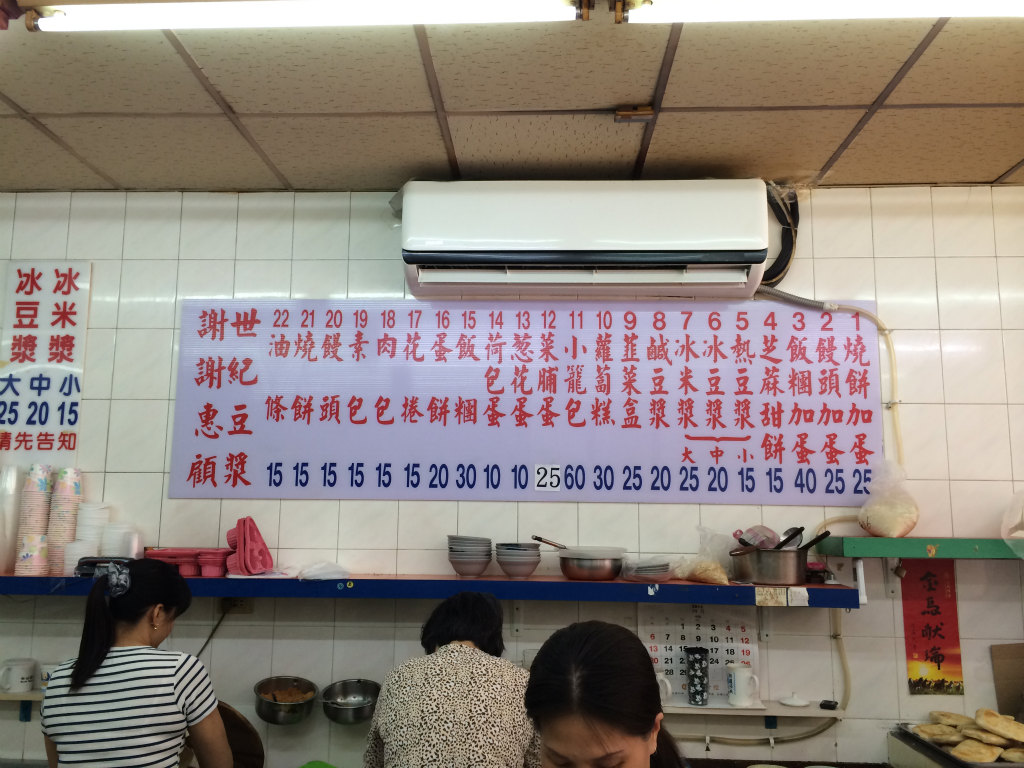 1 燒餅加蛋 25
2 饅頭加蛋 25
3 飯糰加蛋 40
4 芝蔴甜餅 15
5 熱豆漿 小 15
6 冰豆漿 中 20
7 冰米漿 大 25
8 鹹豆漿 20
9 韮菜盒 25
10 蘿蔔糕 30
11 小籠包 60
12 菜脯蛋 25
13 葱花蛋 10
14 荷包蛋 10
15 飯糰 30
16 蛋餅 20
17 花捲 15
18 肉包 15
19 素包 15
20 饅頭 15
21 燒餅 15
22 油條 15
世紀豆漿
謝謝惠顧
冰米漿
冰豆漿
大 中 小
25 20 15
請先告知
金馬獻瑞